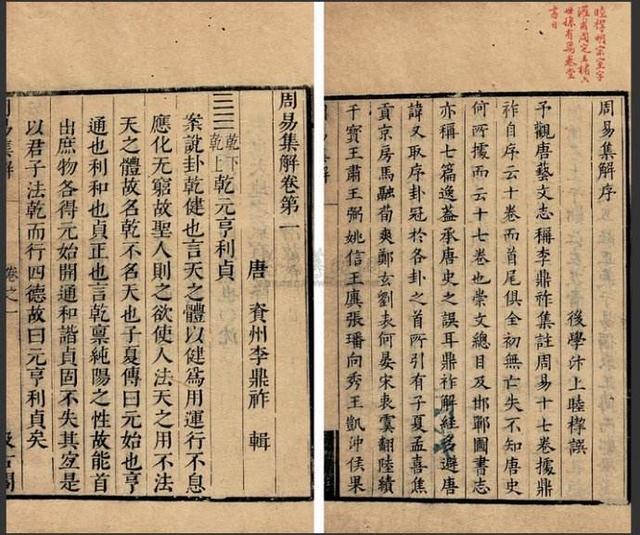 睦㮮明宗室字
灌甫周定王橚六
世孫有萬卷堂
書目
周易集解序
後學汴上睦㮮譔
予觀唐藝文志稱李鼎祚集註周易十七卷據鼎
祚自序云十卷而首尾俱全初無亡失不知唐史
何所據而云十七卷也崇文總目及邯鄲圖書志
亦稱七篇逸蓋承唐史之誤耳鼎祚解經多避唐
諱又取序卦冠於各卦之首所引有子夏孟喜焦
貢京房馬融荀爽鄭玄劉表何晏宋衷虞翻陸績
干寶王肅王弼姚信王廙張璠向秀王凱沖侯果
周易集解卷第一
唐 資州李鼎祚 輯
乾下乾上乾元亨利貞
案說卦乾健也言天之體以健爲用運行不息
應化无窮故聖人則之欲使人法天之用不法
天之體故名乾不名天也子夏傳曰元始也亨
通也利和也貞正也言乾稟純陽之性故能首
出庶物各得元始開通和諧貞固不失其宜是
以君子法乾而行四德故曰元亨利貞矣
周易集解
卷之一